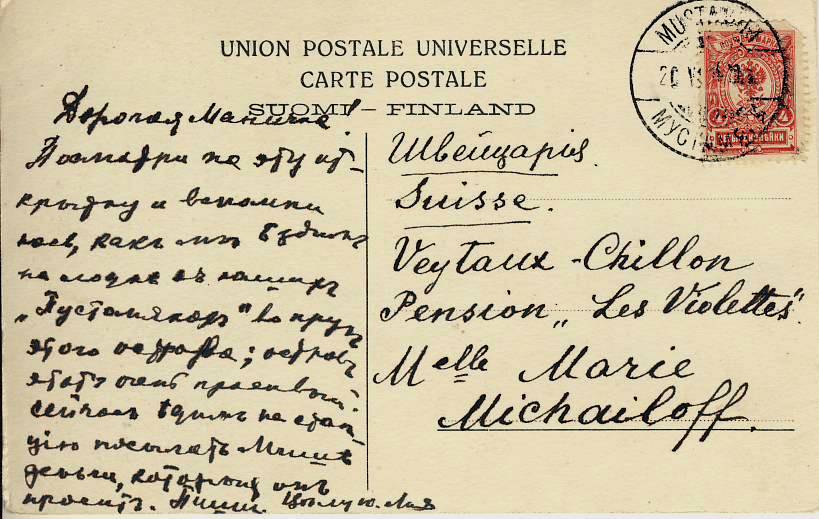 UNION POSTALE UNIVERSELLE
CARTE POSTALE
SUOMI – FINLAND
MUSTAMÄKI
20 VI
Дорогая Маничка!
Посмотри на эту от-
крытку и вспомни
какъ мы ѣздимъ
на лодкѣ съ нашихъ
во кругъ
этого острова; островъ
этотъ очень красивый.
Сейчасъ ѣдимъ на стан-
цію посылать Мишѣ
деньги, которыя онъ
проситъ. Пиши. Цѣлую. Ляя
Швейцарія.
Suisse.
Veytaux-Chillon
Pension „Les Violettes".
Melle Marie
Michailoff.